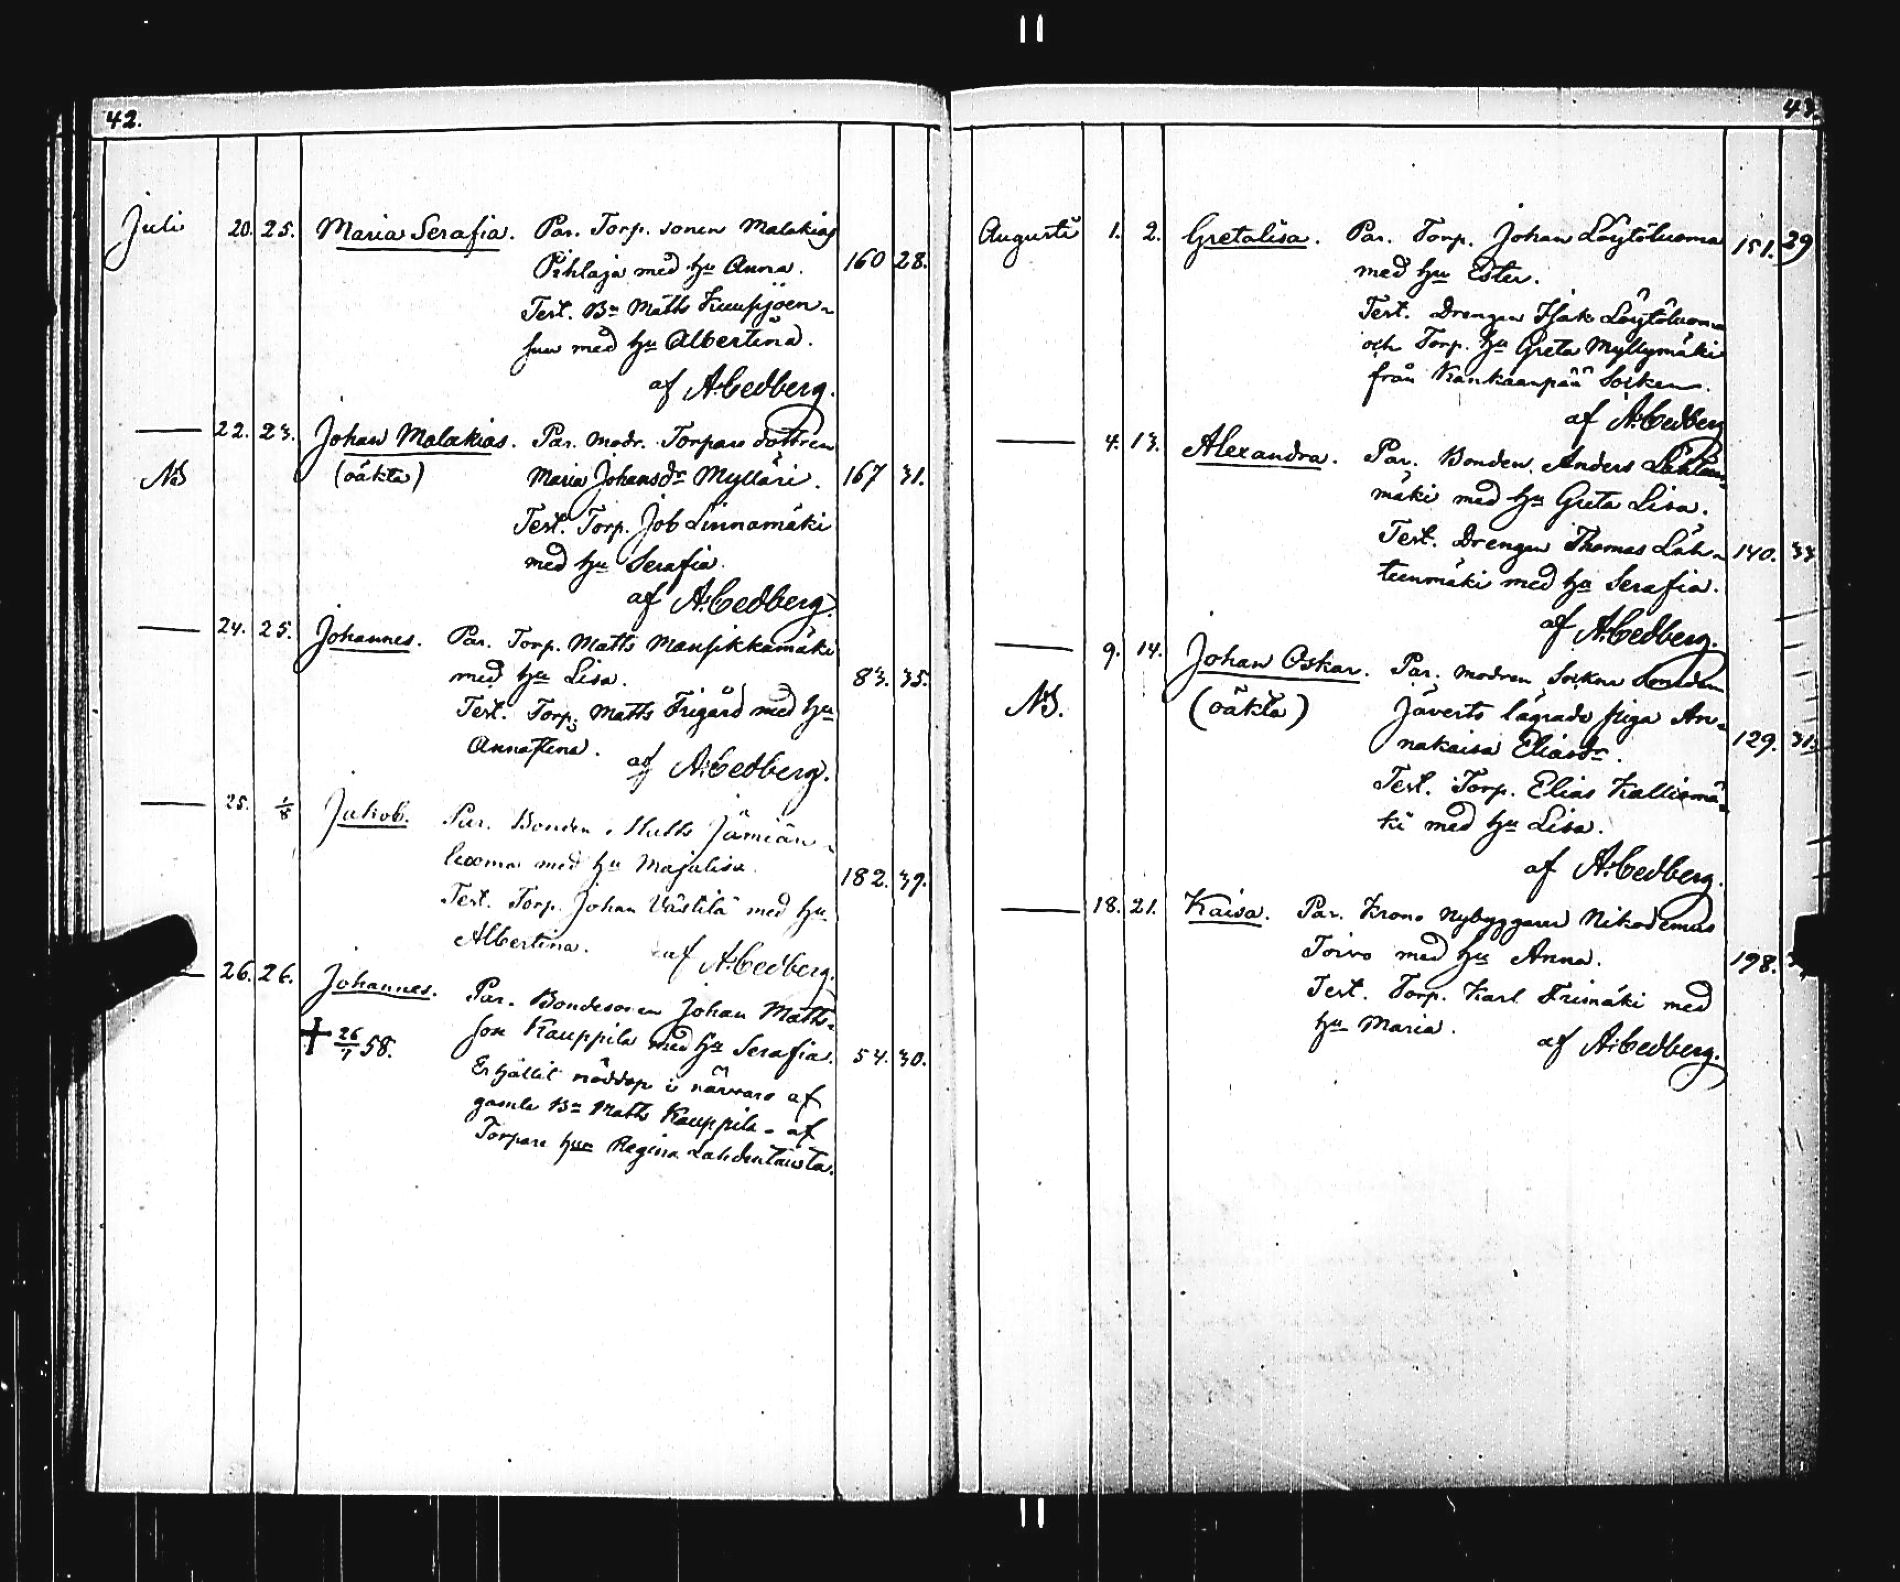 42.
Juli 20. 25. Maria Serafia. Par. Torp. sonen Malakias
Pihlaja med hu Anna. 160 28.
Test. Bn Matts Kuusjoen-
suu med hu Albertina.
af A. Cedberg.
22. 23. Johan Malakias. Par. Modr. Torpare dottren
NB (oäkta) Maria Johansdr Mylläri. 167 31.
Test. Torp. Job Linnamäki
med hu Serafia.
af A. Cedberg.
24. 25. Johannes. Par. Torp. Matts Mansikkamäki
med hu Lisa. 83. 35.
Test. Torp. Matts Frigård med hu
Annastina.
af A. Cedberg.
25. 1/8 Jakob. Par. Bonden Matts Jämiän-
luoma med hu Majalisa. 182. 39.
Test. Torp. Johan Västilä med hu
Albertina. af A. Cedberg.
26. 26. Johannes. Par. Bondesonen Johan Matts-
son Kauppila med hu Serafia. 54. 30.
+ 26/7 58.
Erhållit nöddop i närvaro af
gamla Bn Matts Kauppila - af
Torpare hun Regina Lahdentausta.
43.
Augusti 1. 2. Gretalisa. Par. Torp. Johan Löytöluoma 151. 29
med hu Ester.
Test. Drengen Isak Löytöluoma
och Torp. hu Greta Myllymäki
från Kankaanpää Socken.
af A. Cedberg
4. 13. Alexandra. Par. Bonden Anders Lähteen-
mäki med hu Greta Lisa.
Test. Drengen Thomas Läh- 140. 33
teenmäki med hu Serafia.
af A. Cedberg.
9. 14. Johan Oskar. Par. modren Sockne
NB. (oäkta) Jäverts lägrade piga An-
nakaisa Eliasdr. 129. 31.
Test. Torp. Elias Kalliomä-
ki med hu Lisa.
af A. Cedberg.
18. 21. Kaisa. Par. Krono Nybyggaren Nikodemus
Toivo med hu Anna. 198.
Test. Torp. Karl Frimäki med
hu Maria.
af A. Cedberg.